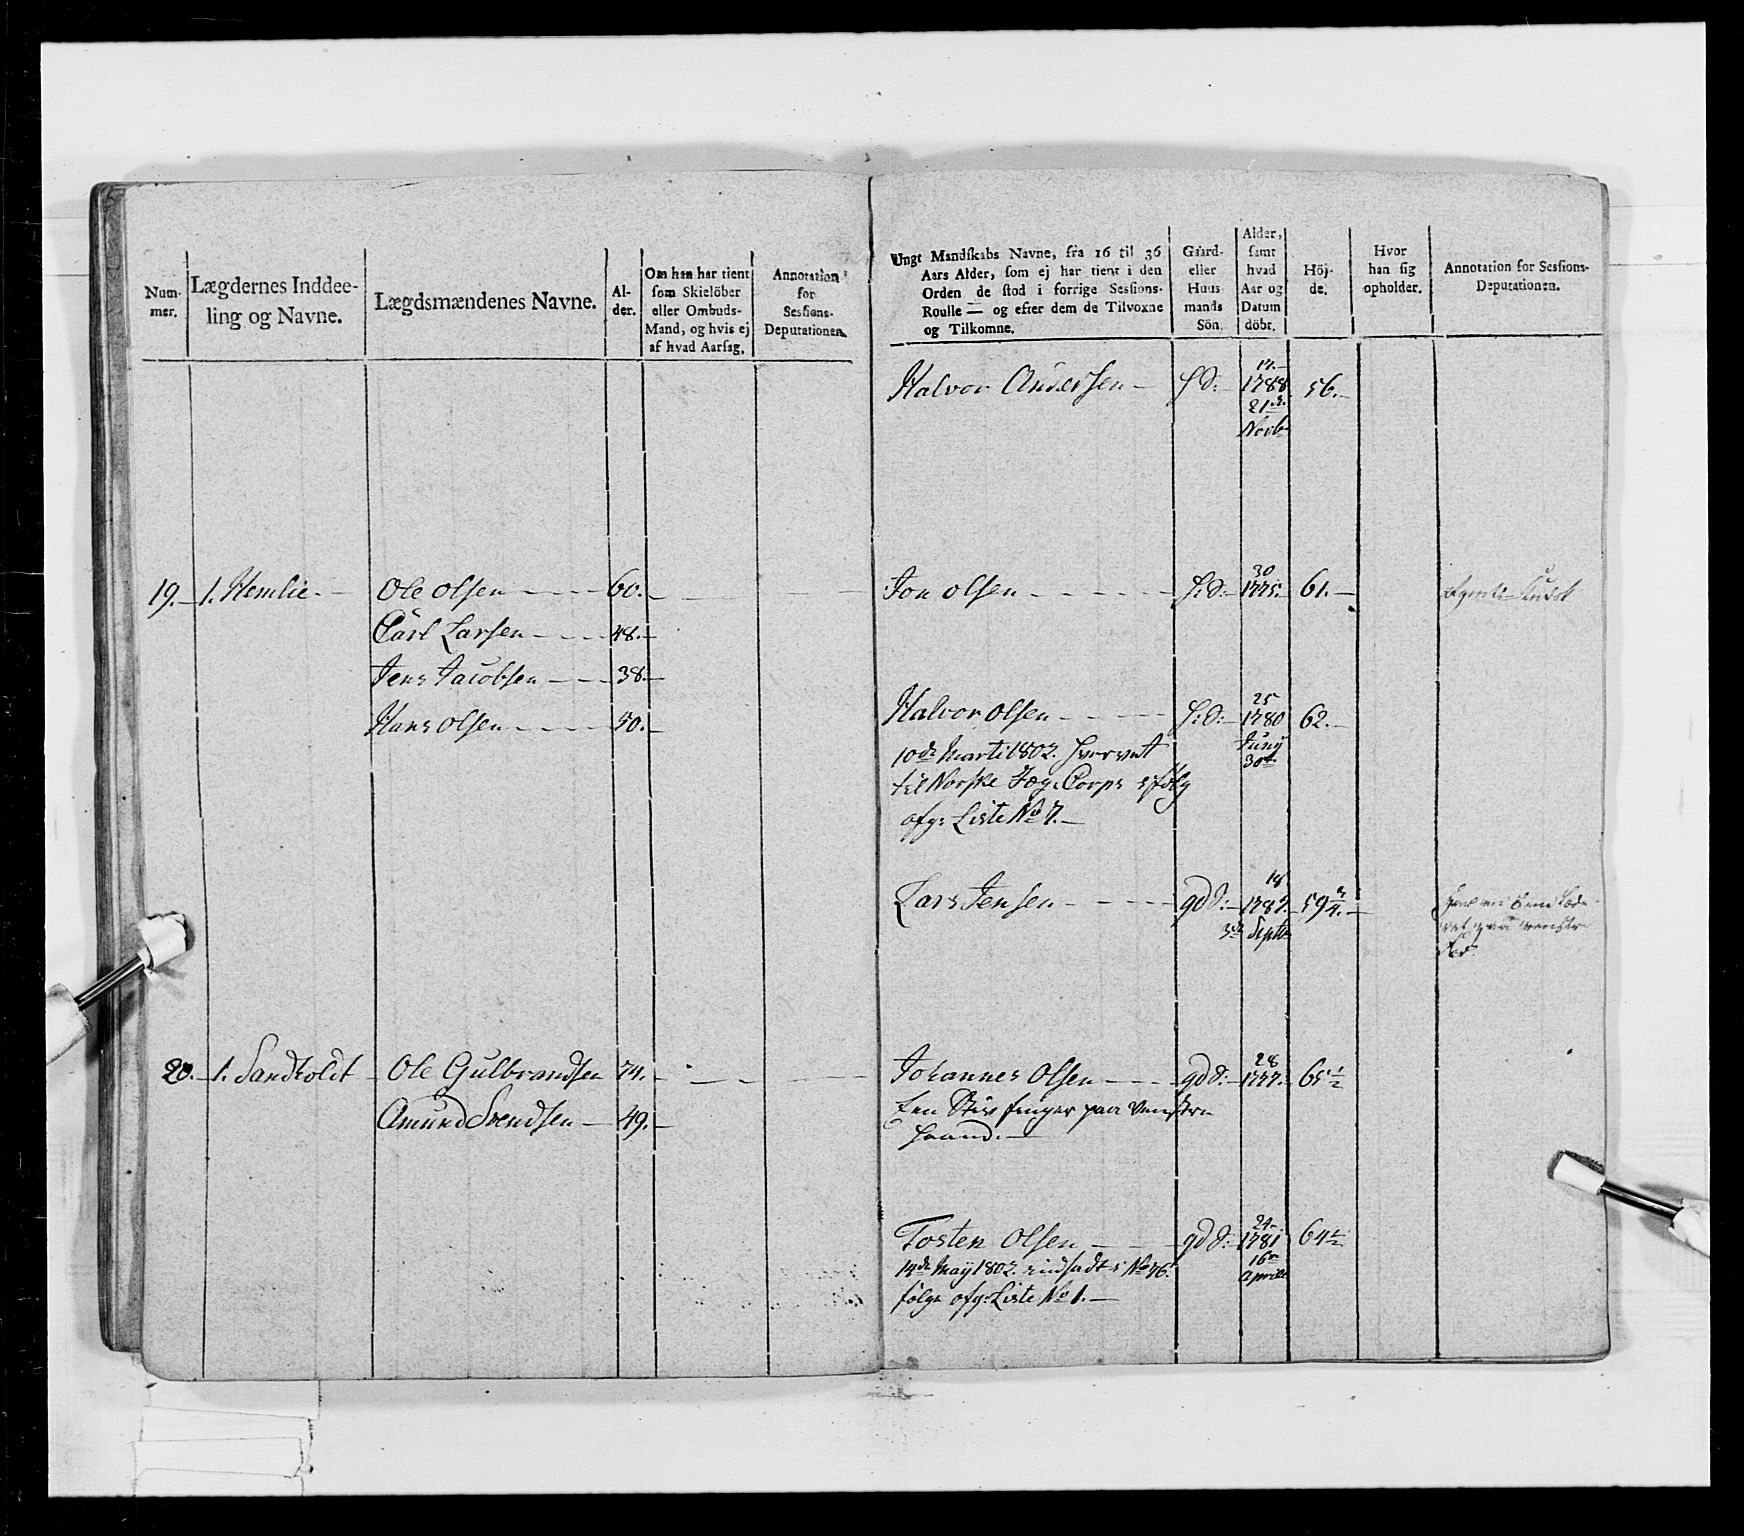 Num-
mer.
Lægdernes Inddee-
ling og Navne.
Lægdsmændenes Navne.
Al-
der.
Om han har tient
som Skielöber
eller Ombuds-
Mand, og hvis ej
af hvad Aarsag.
Annotation
for
Sessions-
Deputationen.
19. 1. Hemlie Ole Olsen 60.
Carl Larsen 48.
Jens Jacobsen 38.
Hans Olsen 50.
20. 1. Sandholdt Ole Gulbrandsen 74.
Amund Svendsen 49.
Ungt Mandskabs Navne, fra 16 til 36
Aars Alder, som ej har tient i den
Orden de stod i forrige Sessions-
Roulle — og efter dem de Tilvoxne
og Tilkomne.
Gaard-
eller
Huus
mands
Sön.
Alder,
samt
hvad
Aar og
Datum
döbt.
Höj-
de.
Hvor
han sig
opholder.
Annotation for Sessions-
Deputationen.
17.
Halvor Andersen 1788 56.
21de
Novb
30
Jon Olsen 1775. 61.
25
Halvor Olsen 1780 62.
Junij
10de Marti 1802. hvervet 30te
til Norske Jæg. Corps
afg: Liste No 7.
18
Lars Jensen gd: 1787. 59 3/4.
3de Septb
venstre
28
Johannes Olsen gd: 1777. 65 1/2
Een Stiv finger paa Venstre
Haand.
24
Tosten Olsen gd: 1781 64 1/2
16de
April
14de Maij 1802. indsadt i No 76.
følge afg: Liste No 1.